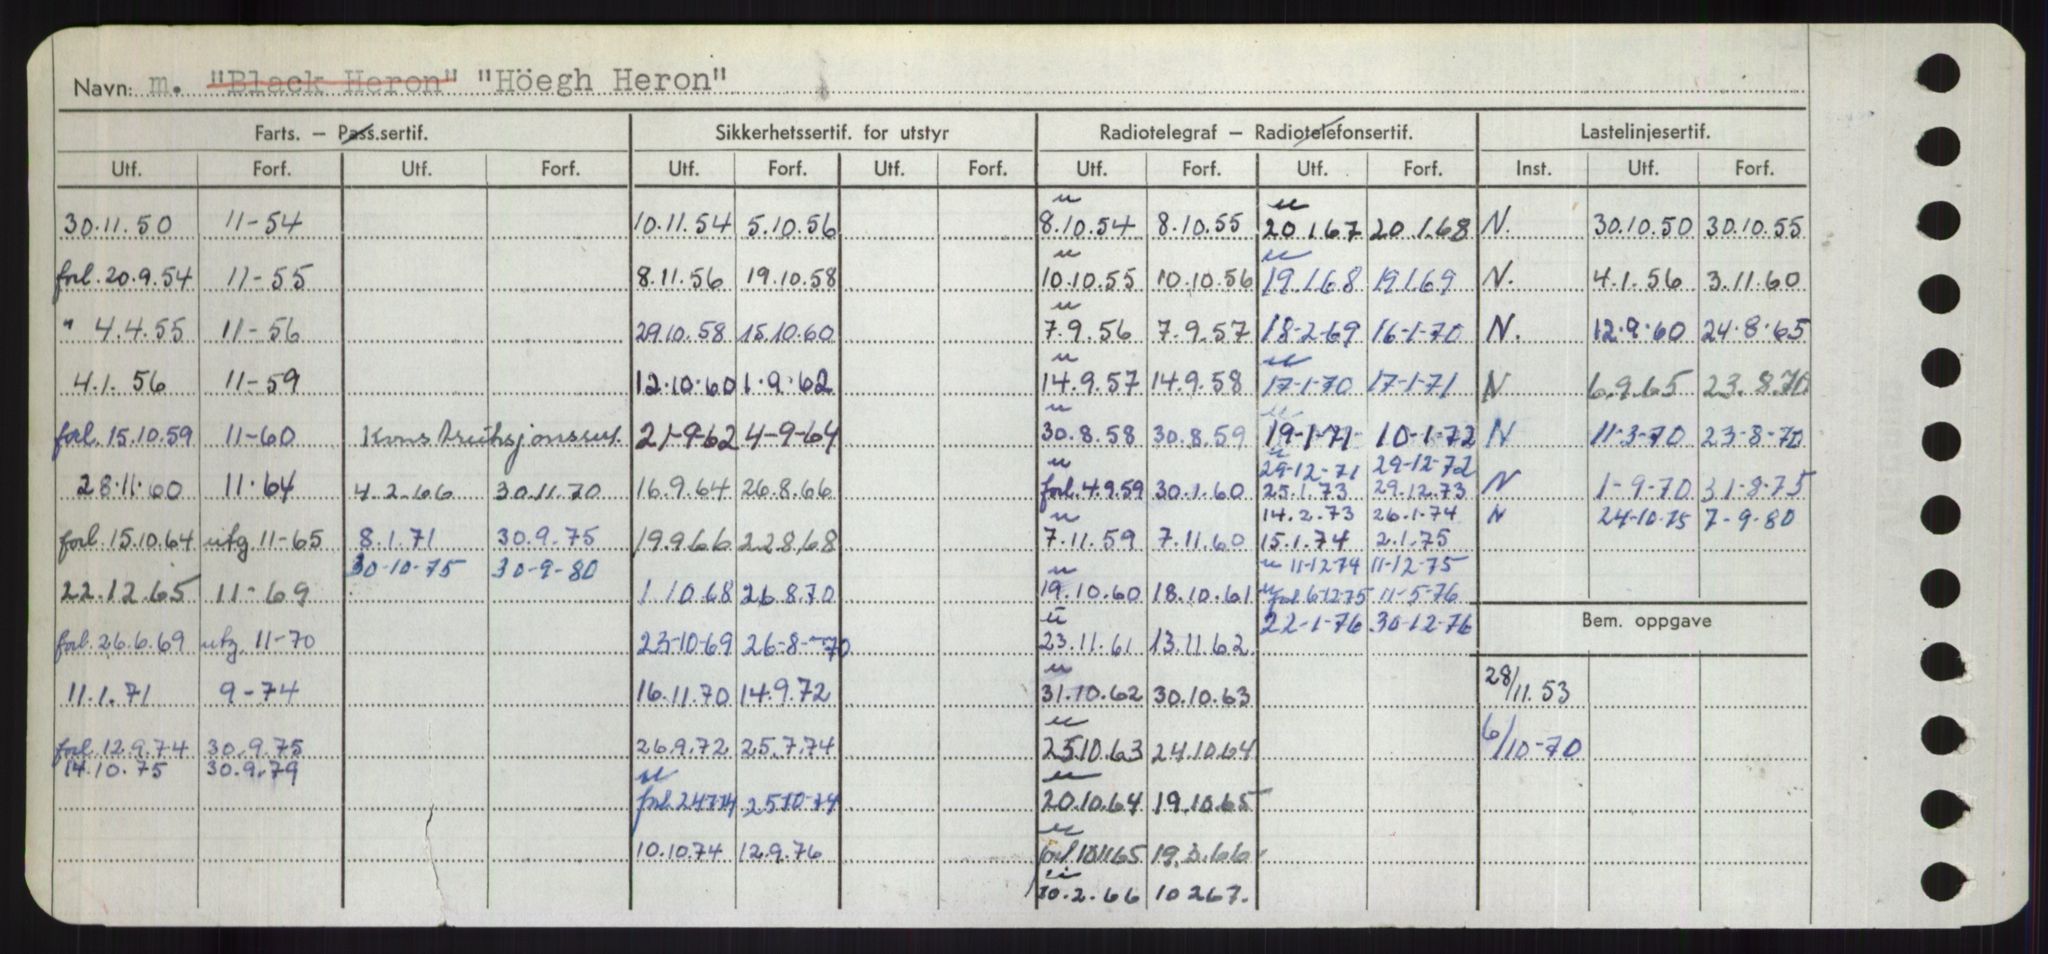 Navn: m. "Black Heron" "Höegh Heron"
Farts. – Pass.sertif. Sikkerhetssertif. for utstyr Radiotelegraf – Radiotelefonsertif. Lastelinjesertif.
Utf. Forf. Utf. Forf. Utf. Forf. Utf. Forf. Utf. Forf. Utf. Forf. Inst. Utf. Forf.
30.11.50 11-54 10.11.54 5.10.56 8.10.54 8.10.55 20.1.67 20.1.68 N. 30.10.50 30.10.55
forl. 20.9.54 11-55 8.11.56 19.10.58 10.10.55 10.10.56 19.1.68 19.1.69 N. 4.1.56 3.11.60
" 4.4.55 11-56 29.10.58 15.10.60 7.9.56 7.9.57 18-2-69 16-1-70 N. 12.9.60 24.8.65
4.1.56 11-59 12.10.60 1.9.62 14.9.57 14.9.58 17-1-70 17-1-71 N 6.9.65 23.8.70
forl. 15.10.59 11-60 21-9-62 4-9-64 30.8.58 30.8.59 19-1-71 10-1-72 N 11-3-70 23-8-70
29-12-71 29-12-72
28.11.60 11.64 4.2.66 30.11.70 16.9.64 26.8.66 forl. 4.9.59 30.1.60 25.1.73 29.12.73 N 1-9-70 31-8-75
14.2.73 26.1.74 N 24-10-75 7-9-80
forl. 15.10.64 utg. 11-65 8.1.71 30.9.75 19.9.66 22.8.68 7.11.59 7.11.60 15.1.74 2.1.75
30-10-75 30-9-80 11-12-74 11-12-75
22.12.65 11-69 1.10.68 26.8.70 19.10.60 18.10.61 forl. 6-12-75 11-5-76
22-1-76 30-12-76 Bem. oppgave
forl. 26.6.69 utg. 11-70 23-10-69 26-8-70 23.11.61 13.11.62
11.1.71 9-74 16.11.70 14.9.72 31.10.62 30.10.63 28/11.53
forl. 12.9.74 30.9.75 26.9.72 25.7.74 25.10.63 24.10.64 6/10-70
14.10.75 30.9.79
forl. 24.7.74 25-10-74 20.10.64 19.10.65
10.10.74 12.9.76 forl. 10.11.65 19.3.66
10.2.66 10.2.67.